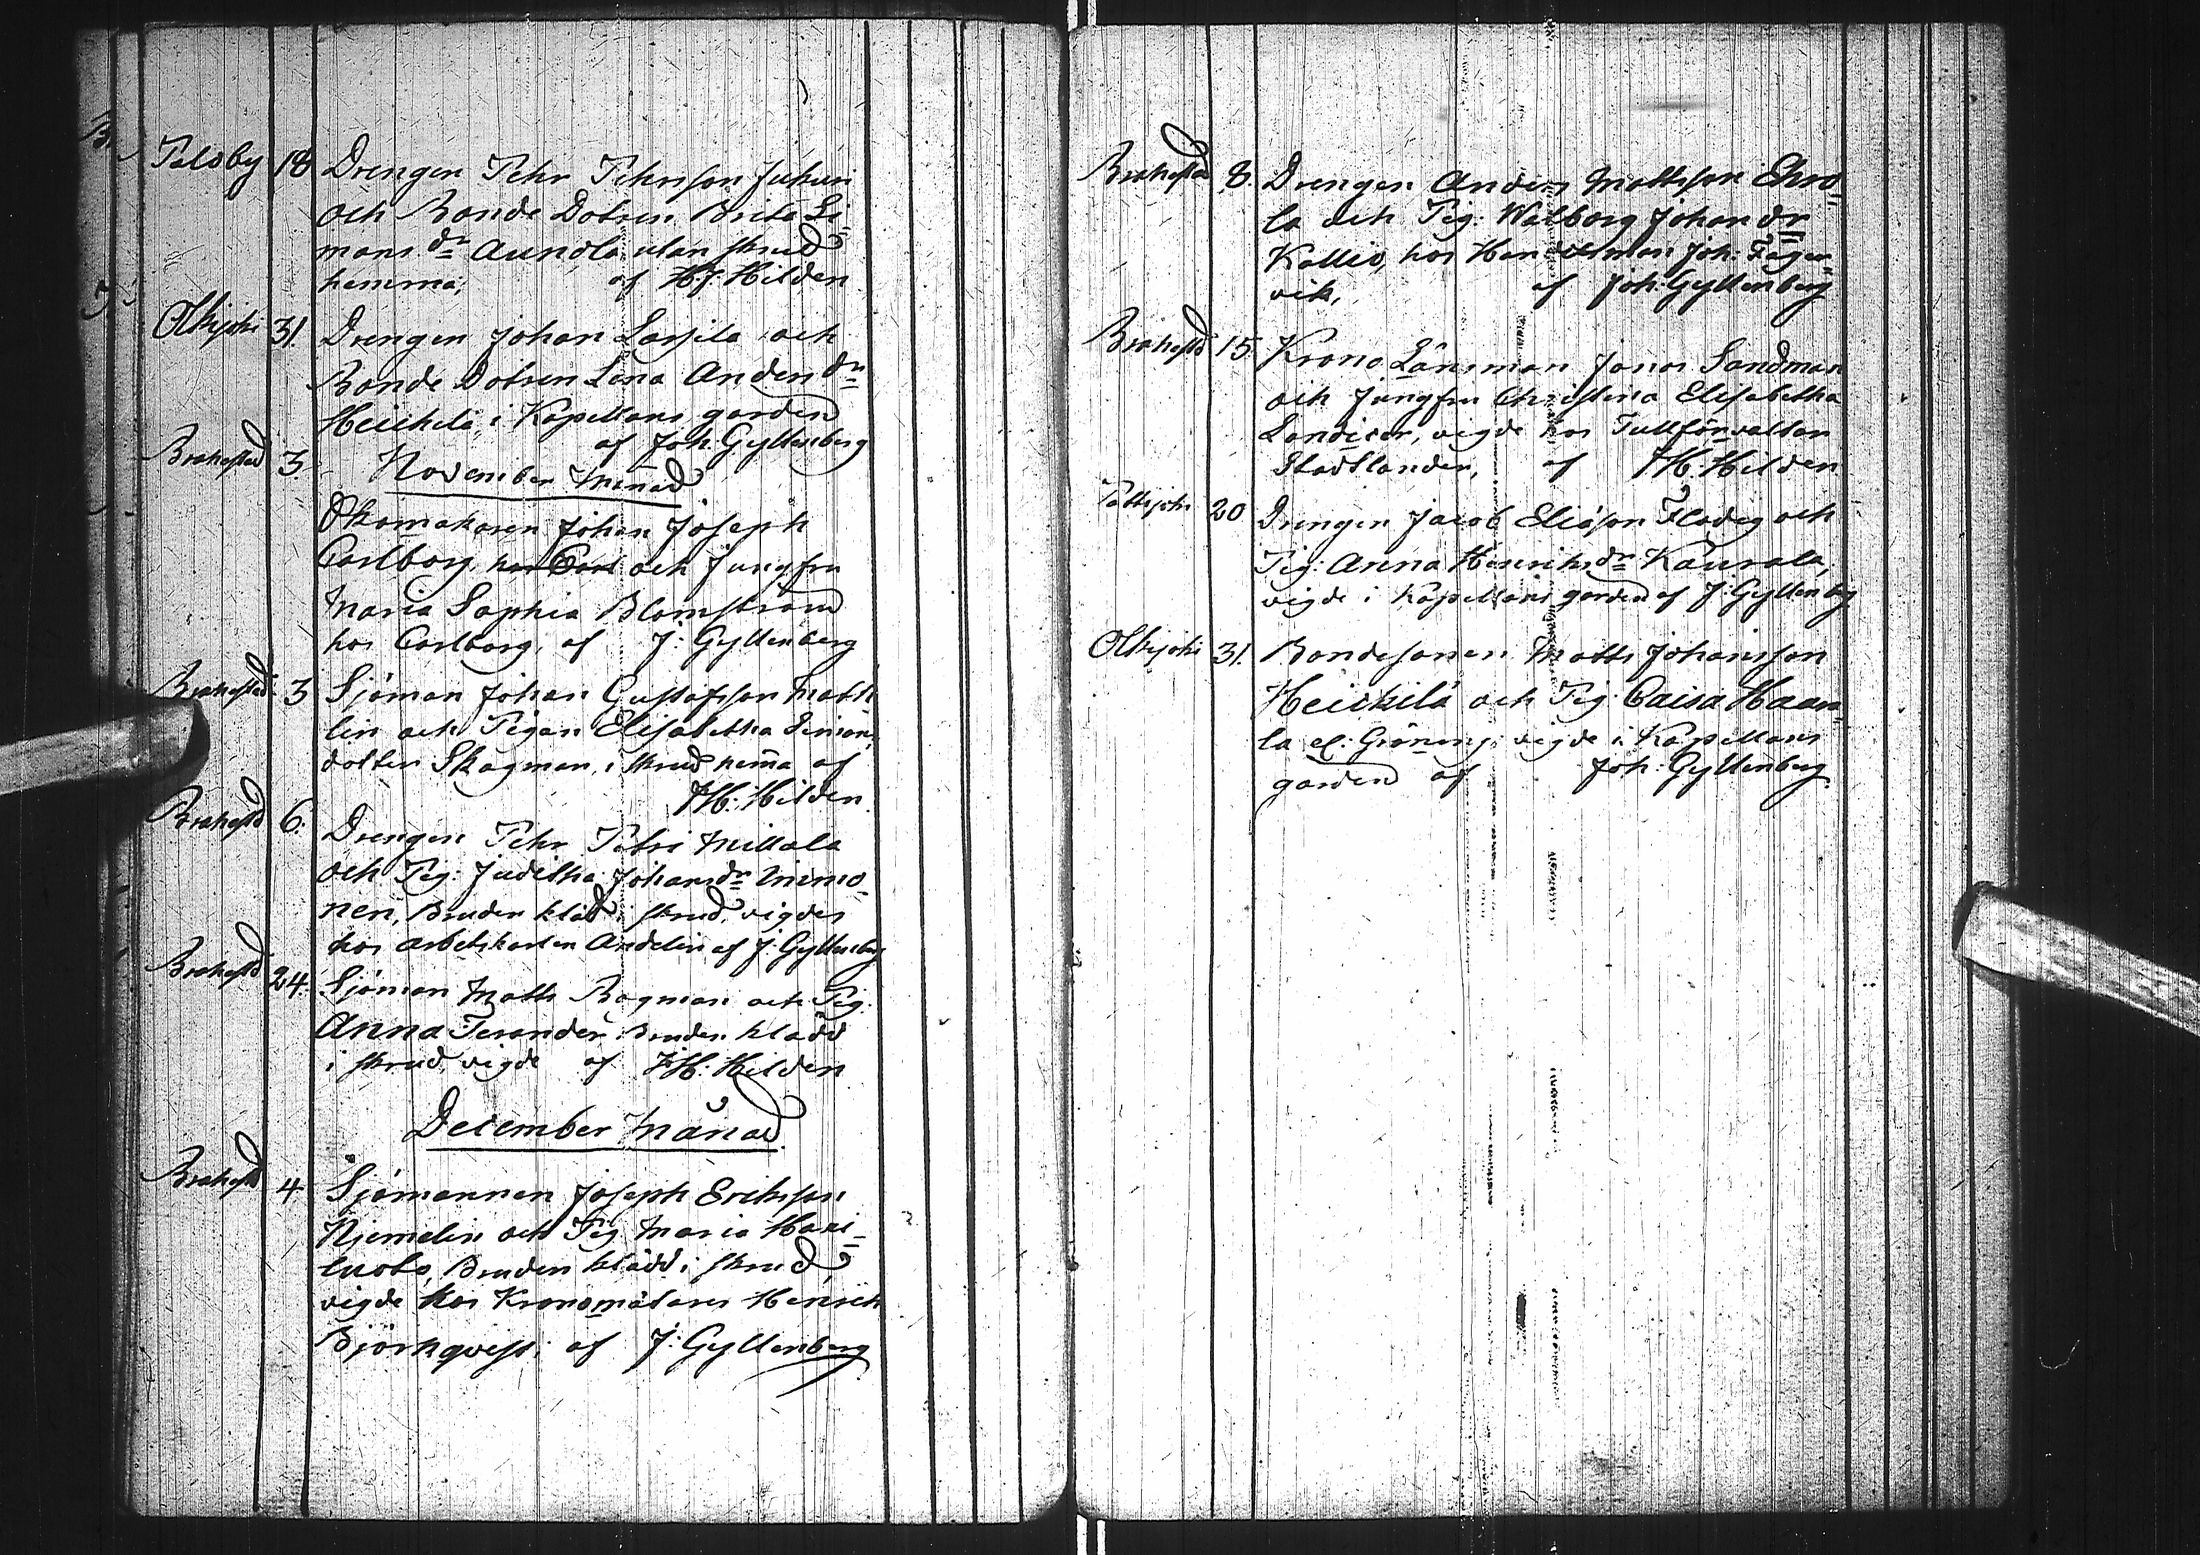 Paloby 18 Drengen Pehr Pehrsson Juhuri
och Bonde Dotren Brita Si=
mons dr Aunola utan skrud
hemma, af HJ. Hilden
Olkijoki 31. Drengen Johan Lassila och
Bonde Dotren Lena Anders dr
Heickilä, i Kapellans gården
af Joh: Gyllenberg
Brahestad 3. November Månad
Skomakaren Johan Joseph
Carlborg hos Carl och Jungfru
Maria Sophia Blomström
hos Carlborg, af J: Gyllenberg
Brahestad 3 Sjöman Johan Gustafsson Math
lin och Pigan Elisabetha Simons
dotter Skogman, i skrud hema af
JH: Hilden.
Brahestd 6. Drengen Pehr Petri Millala
och Pig: Juditha Johans dr Mimo-
nen, Bruden klädd i skrud, vigdes
hos arbetskarlen Andelin af J: Gyllenberg
Brahestd 24. Sjöman Matts Bogman och Pig:
Anna Terander Bruden klädd
i skrud, vigde af JH: Hilden
December Månad.
Brahestd 4 Sjömannen Joseph Eriksson
Njemelin och Pig Maria Hari=
luoto, Bruden klädd i skrud,
vigde hos Kronomätaren Henrich
Björkqvist; af J: Gyllenberg
Brahestad 8. Drengen Anders Mattsson Ehro=
la och Pig: Walborg Johan dr
Kallio, hos Handelsman Joh: Fager=
vik, af Joh: Gyllenberg
Brahestd 15. Krono Länsman Jonas Sandman
och Jungfru Christina Elisabetha
vigde hos Tullförvaltar
Stadtlander, af JH. Hilden
Pattijoki 20 Drengen Jacob Eliasson Flodig och
Pig: Anna Henriks dr Kaurala,
vigde i Kapellans gården af J: Gyllenberg
Olkijoki 31. Bondesonen Matts Johansson
Heickilä och Pig: Caisa Haara=
la el: Gröning, vigde i Kapellans
gården af Joh: Gyllenberg